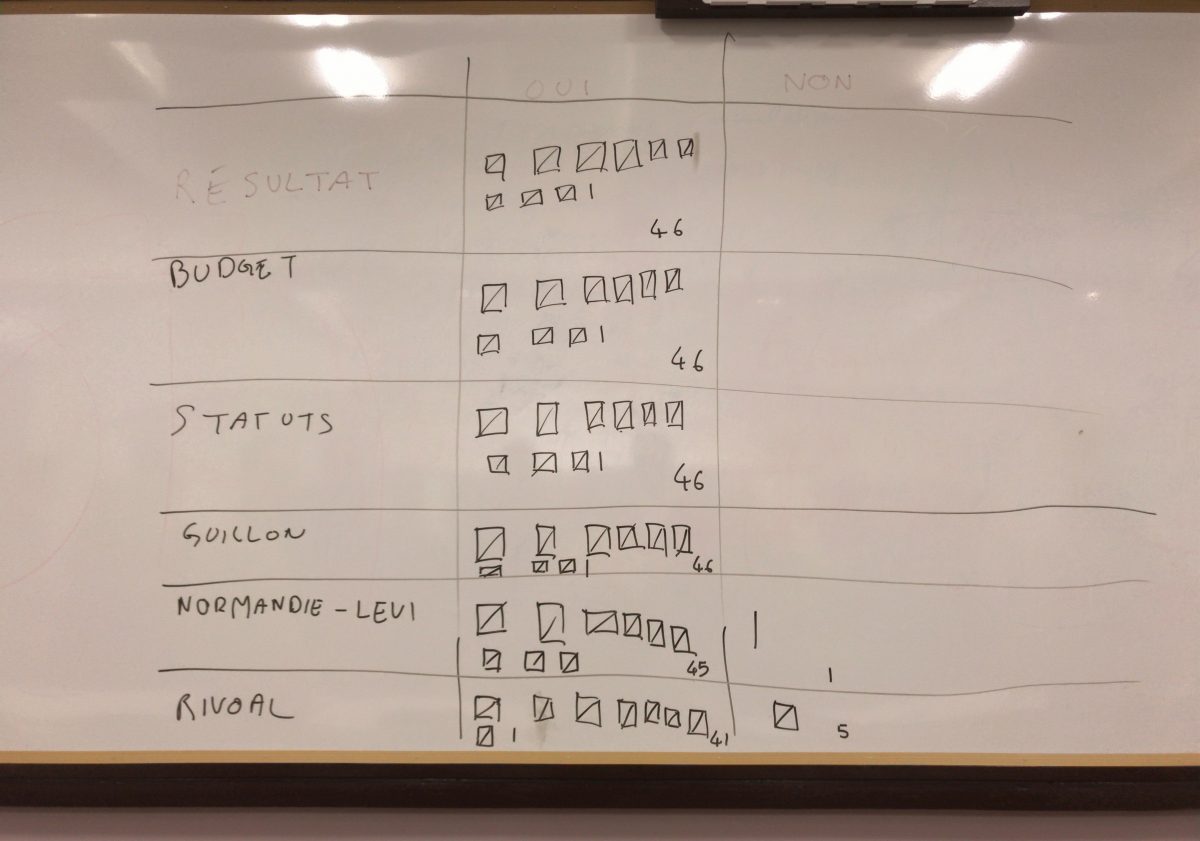 OUI NON
RÉSULTAT
46
BUDGET
46
STATUTS
46
GUILLON
46
NORMANDIE-LEVI
45 1
RIVOAL
41 5